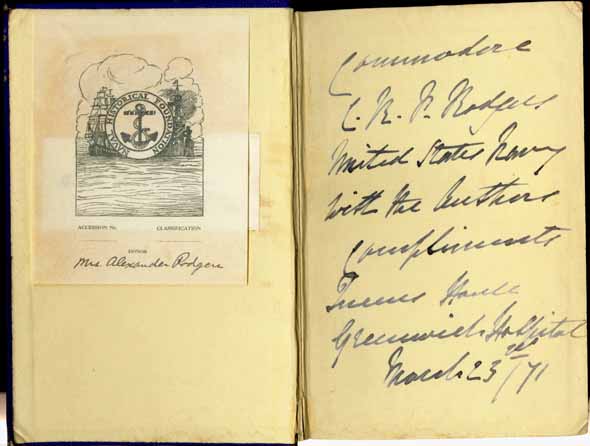 NAVAL HISTORICAL FOUNDATION
ACCESSION No. CLASSIFICATION
DONOR
Mrs. Alexander Rodgers
Commodore
C. R. P. Rodgers
United States Navy
With the Authors
Compliments
House
Greenwich Hospital
March 23rd/71